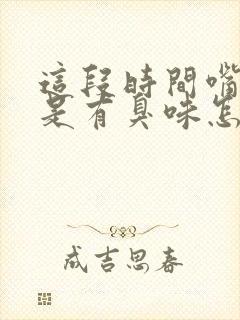 這段時間嘴
是有臭味怎
成吉思春